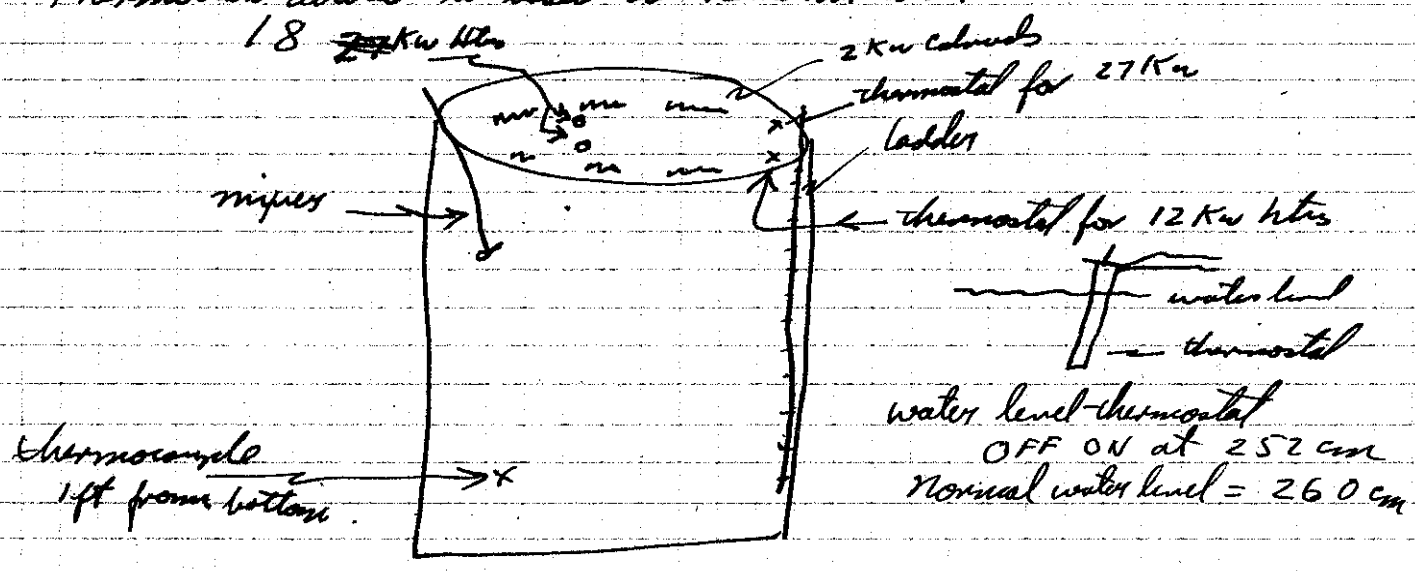 18 Kw htrs
2 Kw calrods
thermostat for 27 Kw
ladder
mixer
thermostat for 12 Kw htrs
water level
thermostat
water level thermostat
OFF ON at 252 cm
Normal water level = 260 cm
thermocouple
1 ft from bottom.